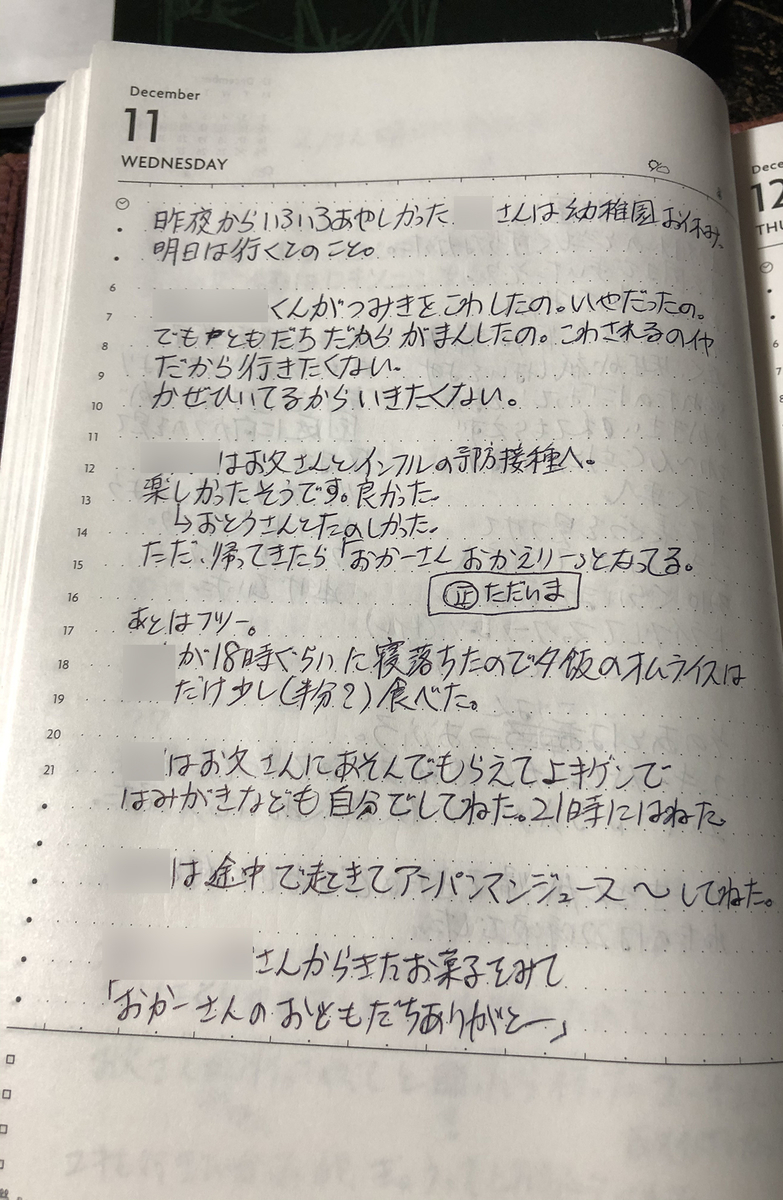 December
11
WEDNESDAY
昨夜からいろいろあやしかった さんは幼稚園お休み、
明日は行くとのこと。
くんがつみきをこわしたの。いやだったの。
でもともだちだからがまんしたの。こわされるのイヤ
だから行きたくない。
かぜひいてるからいきたくない。
はお父さんとインフルの予防接種へ。
楽しかったそうです。良かった。
↳おとうさんとたのしかった。
ただ、帰ってきたら「おかーさん おかえりー」となってる。
㊣ただいま
あとはフツー。
が18時ぐらいに寝落ちたので夕飯のオムライスは
だけ少し(半分?)食べた。
はお父さんにあそんでもらえてよキゲンで
はみがきなども自分でしてねた。21時にはねた。
は途中で起きてアンパンマンジュース〜してねた。
さんからきたお菓子をみて
「おかーさんのおともだちありがとー」
6
7
8
9
10
11
12
13
14
15
16
17
18
19
20
21
12
THU